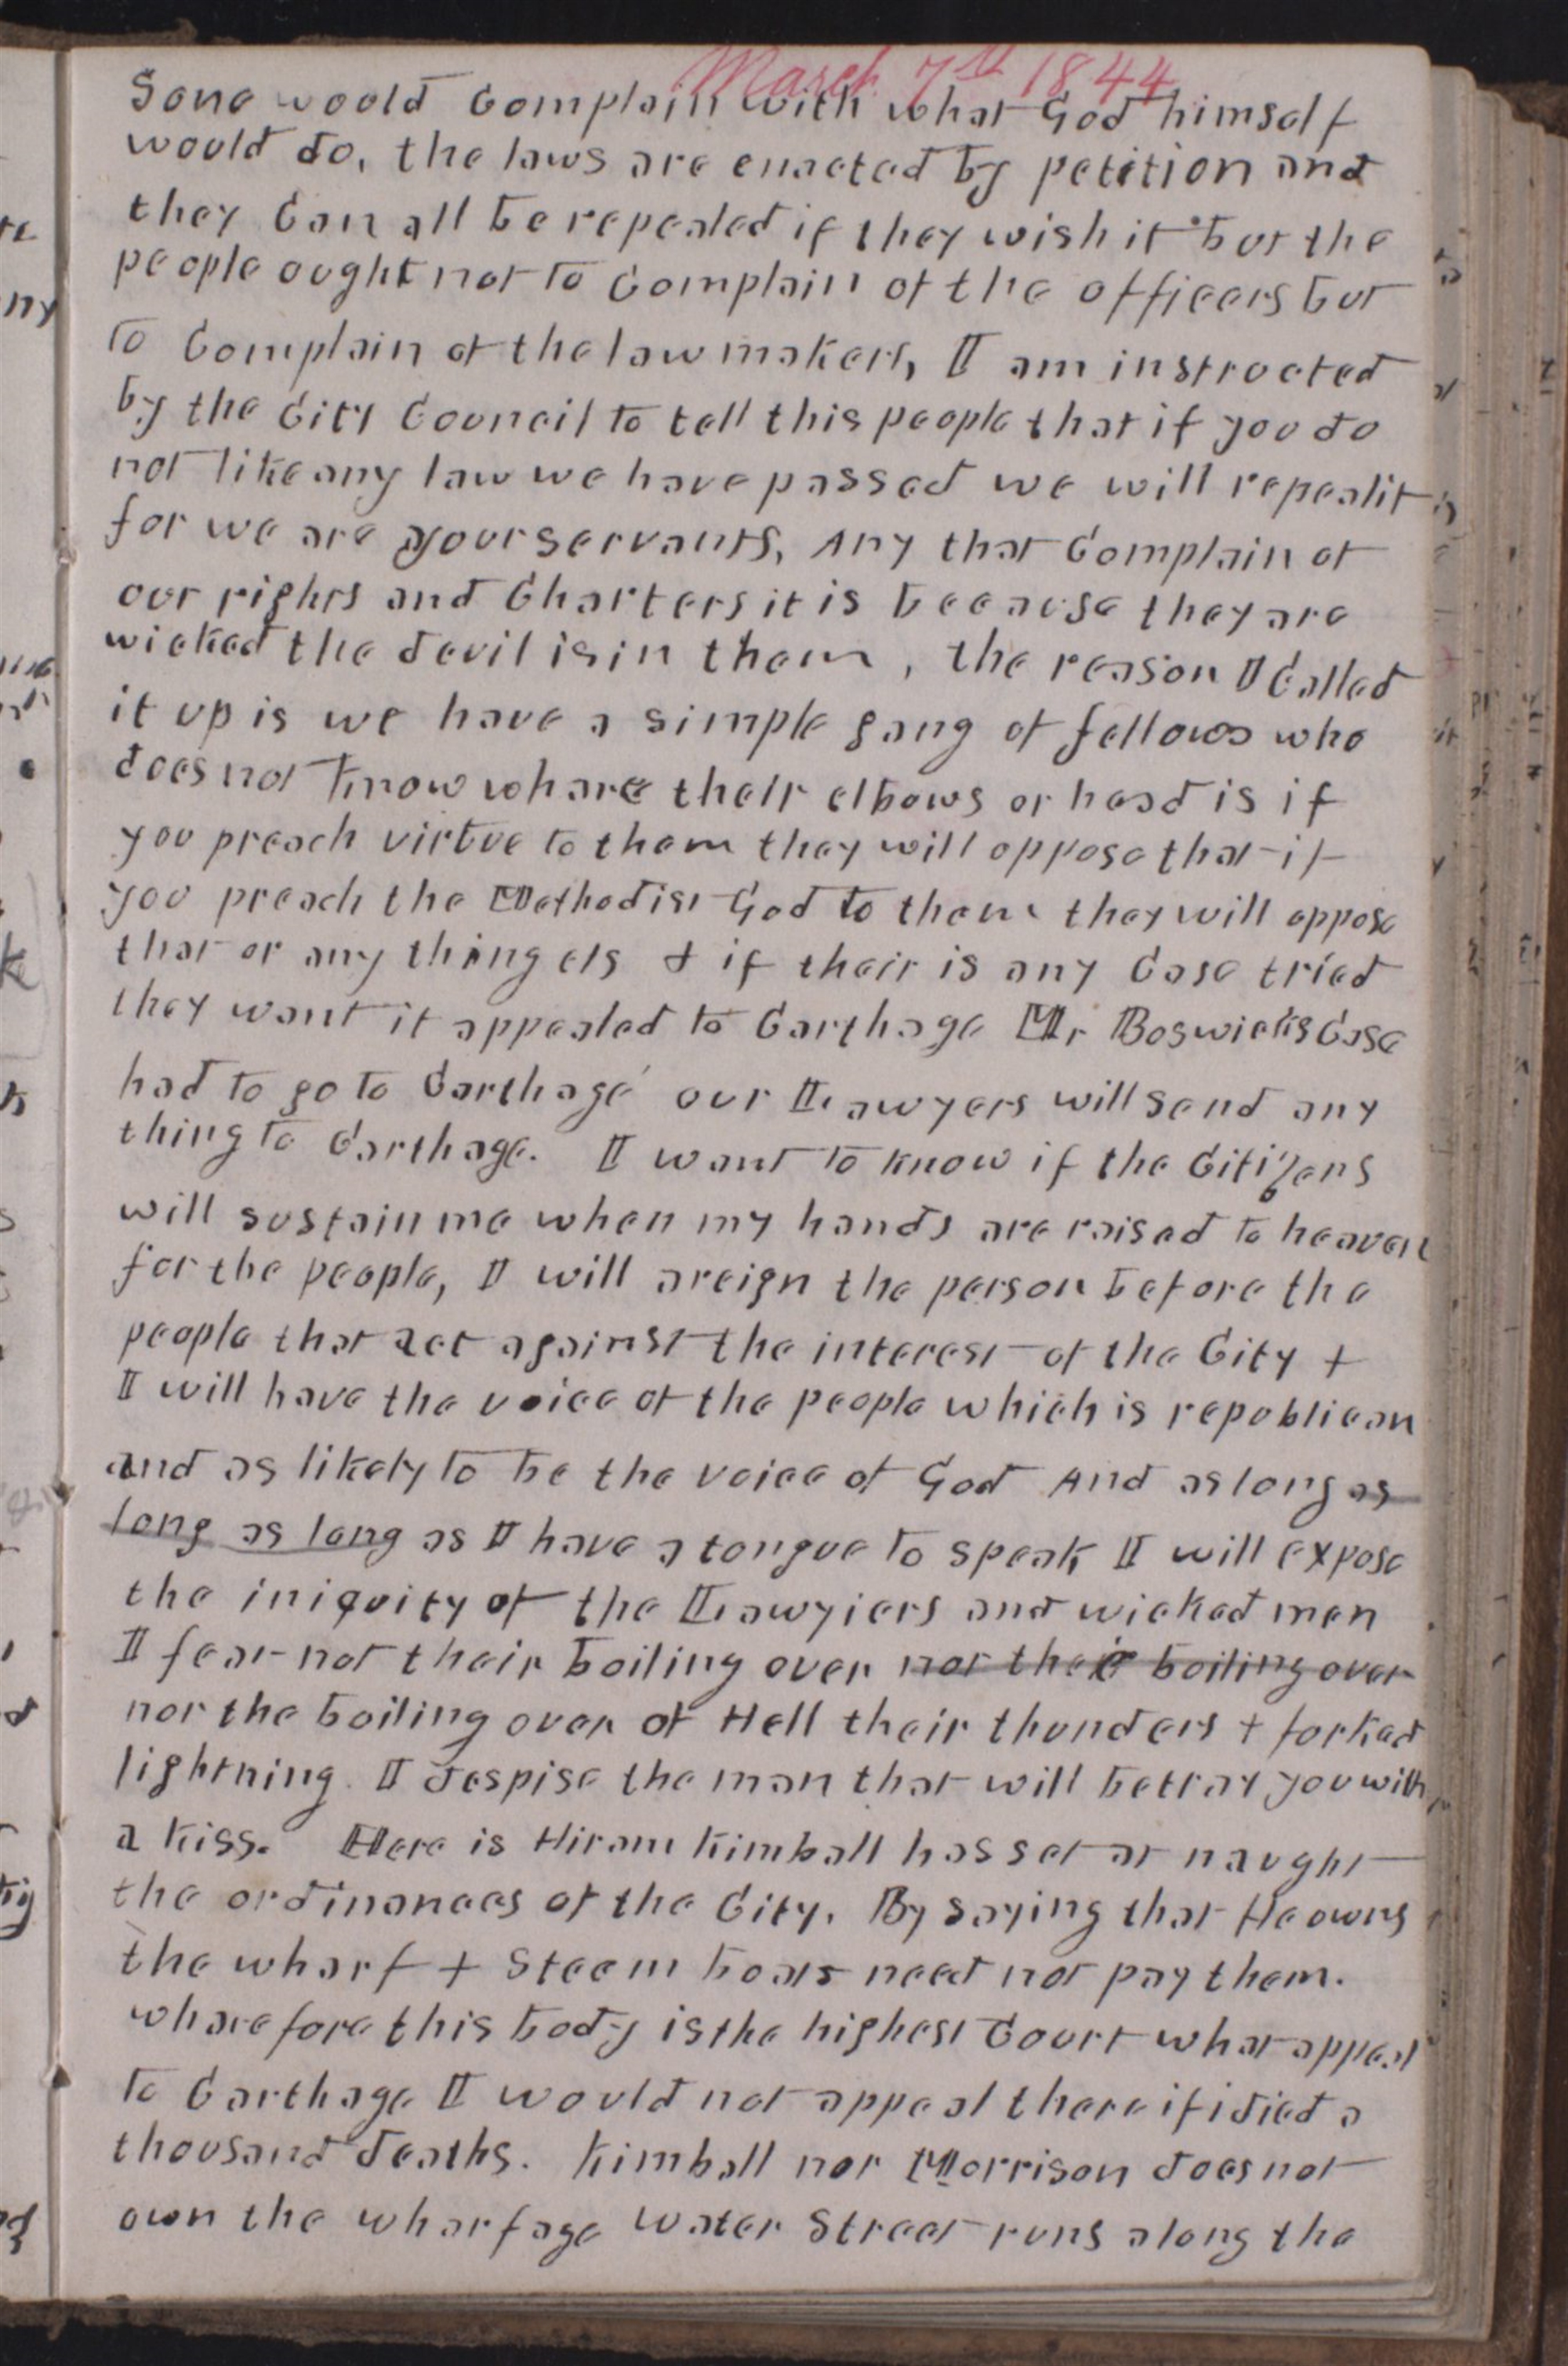 March 7th 1844
Some would Complain with what God himself
would do, the laws are enacted by petition and
they Can all be repealed if they wish it but the
people ought not to Complain of the officers but
to Complain of the law makers, I am instructed
by the City Council to tell this people that if you do
not like any law we have passed we will repeal it
for we are your servants, Any that Complain of
our rights and Charters it is because they are
wicked the devil is in them, the reason I Called
it up is we have a simple gang of fellows who
does not know whare their elbows or head is if
you preach virtue to them they will oppose that if
you preach the Methodist God to them they will oppose
that or any thing els + if their is any Case tried
they want it appealed to Carthage Mr Boswicks Case
had to go to Carthage our Lawyers will send any
thing to Carthage. I want to know if the Citizens
will sustain me when my hands are raised to heaven
for the people, I will areign the person before the
people that act against the interest of the City +
I will have the voice of the people which is republican
and as likely to be the voice of God And as long as
long as long as I have a tongue to speak I will expose
the iniquity of the Lawyiers and wicked men
I fear not their boiling over nor their boiling over
nor the boiling over of Hell their thunders + forked
lightning. I despise the man that will betray you with
a kiss. Here is Hiram Kimball has set at naught
the ordinances of the City. By saying that He owns
the wharf + Steem boats need not pay them.
wharefore this body is the highest Court what appeal
to Carthage I would not appeal there if i died a
thousand deaths. Kimball nor Morrison does not
own the wharfage Water Street runs along the